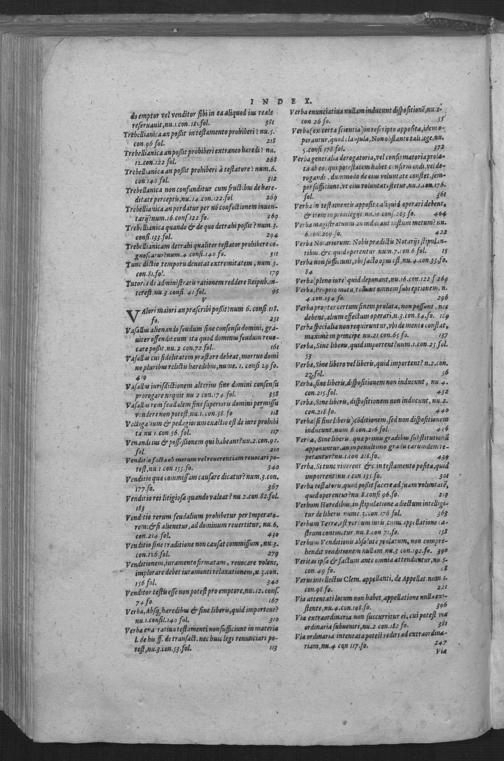 INDEX.
do emptor vel venditor sibi in ea aliquod ius reale
reseruauit, nu. 1. con. 181. fol. 381
Trebellianica an possit in testamento prohiberi: nu. 5.
con. 96 fol. 215
Trebellianica an possit prohiberi extraneo haeredi? nu.
12. con. 122 fol. 268
Trebellianica an possit prohiberi à testatore? num. 6.
con. 140 fol. 312
Trebellianica non confunditur cum fructibus de haere-
ditate perceptis, nu. 14. con. 122. fol 269
Trebellianica an perdatur per nō confectionem inuen-
tarij? num. 16 conf 122 fo. 269
Trebellianica quando & de quo detrahi possit? num 3.
consi. 133 fol. 294
Trebellianicam detrahi qualiter testator prohibere co-
gnoscatur? num. 4. consi. 140 fo. 311
Tunc dictio temporis denotat extremitatem, num. 3.
con. 81. fol. 179
Tutores de administratione rationem reddere Reipub. in-
terest. nu. 3 consi. 41 fol. 95
V
Valori maiori an praescribi possit: num 6. consi 118.
fo. 251
Vasallus alienando feudum sine consensu domini, gra-
uiter offendit eum ita quod dominus feudum reuo-
care possit. nu. 2 con. 72 fol. 161
Vasallus cui fidelitatem praestare debeat, mortuo domi-
no pluribus relictis haeredibus, nume. 1. consi 29 fo.
Vasallus iurisdictionem alterius sine domini consensu
prorogare nequit nu 2 con. 174 fol. 358
Vasallus rem feudalem sine superioris domini permissu
vendere non potest, nu. 1. con. 58 fo 118
Vectigalium & pedagiorum exactio est de iure prohibi
ta nu. 1 con. 56. fol. 117
Venandi ius & possessionem qui habeant? nu. 2. con. 92.
fol. 210
Venditio facta ab haerede vel reuerenciam reuocari po-
test, nu. 1 con 155. fo. 340
Venditio qua commissum causare dicatur? num. 3 con.
177. fo. 367
Venditio rei litigiosae quando valeat? nu. 2. con. 82. fol.
183
Venditio rerum feudalium prohibetur per Imperato-
rem: & si alienetur, ad dominum reuertitur, nu. 6.
con. 214 fol. 430
Venditio sine traditione non causat commissum, nu. 3.
con. 126. fol. 279
Venditionem, iuramento firmatam, reuocare volens,
implorare debet iuramenti relaxationem, nu. 3. con.
156 fol. 342
Venditor testis esse non potest pro emptore, nu. 12. cons.
74 fo. 167
Verba, Absque haeredibus & sine liberis, quid importent?
nu. 1. consi. 140 fol. 310
Verba enarratiua testamenti non sufficiunt in materia
l. de his ff. de transact. nec huic legi renunciari po-
test, nu. 3. con. 53. fol. 113
Verba enunciatiua nullam inducunt dispositionē, nu. 2.
con 26 fo. 55
Verba, ex certa scientia, in rescripto apposita, idem o-
perantur, quod clausula, Non obstante tali lege, nu.
5. consi 178 fol. 372
Verba generalia derogatoria, vel confirmatoria prola-
ta ab eo, qui potestatem habet confirmandi, vel de-
rogandi, dummodo de eius voluntate constet, sem-
per sufficiunt, vt eius voluntati stetur, nu. 1. con. 176.
fol. 361
Verba in testamentis apposita aliquid operari debent,
404
Verba magistratuum an inducant iustum metum? nu.
6. con. 209 fo. 428
Verba Notariorum: Nobis praedictis Notarijs stipulan-
tibus. &c. quid operentur num. 7. con 6 fol. 15
Verba non sufficiunt, vbi facto opus est. nu. 4. con 33. fo.
84
Verba: pleno iure: quid disponant, nu. 16. con 122 f. 269
4 con. 154 fo. 296
Verba propter certum finem prolata, non possunt, nec
debent, alium effectum operari, n. 3. con. 54 fo. 169
Verba specialia non requiruntur, vbi de mente constat,
maxime in principe nu. 21 con. 65 fo. 137
Verba, Sine liberis quid importent? num. 1. con 23 fol.
53
Verba, Sine libero vel liberis, quid importent? n. 2. con.
27. fol. 56
Verba, sine liberis, dispositionem non inducunt, nu. 4.
con. 215. fol. 432
Verba, Sine liberis, dispositionem non inducunt, nu. 2.
con. 218 fo. 440
Verba: si sine liberis: cōditionem, sed non dispositionem
inducunt. num 6. con. 216 fol. 436
439
Verba, Si tunc viuerent &c. in testamento posita, quid
importent? nu. 1 con 135 fo. 301
Verba vessatoria, quod possit facere ad suam voluntatē,
quid operentur? nu. 8. consi 96. fo. 219
Verbum Haeredibus, in stipulatione adiectum intelligi-
tur de liberis nume. 3. con. 176 fol. 363
158
Verbum Venditionis absolute prolatum, non compre-
hendit venditionem nullam. nu. 3. con. 192. fo. 390
Veritas ipsa & factum ante omnia attenduntur, nu. 5.
con. 49 fo. 18
Versus intellectus Clem. appellanti, de Appellat. num 5.
con. 98 fo. 221
Via attentati locum non habet, appellatione nulla exi-
stente, nu. 4. con. 198. fo. 396
Via extraordinaria non succurritur ei, cui potest via
ordinaria subueniri, nu. 2 con. 182 fo. 381
Via ordinaria intentata potest rediri ad extraordina-
riam, nu. 4 con 117. fo. 247
Via